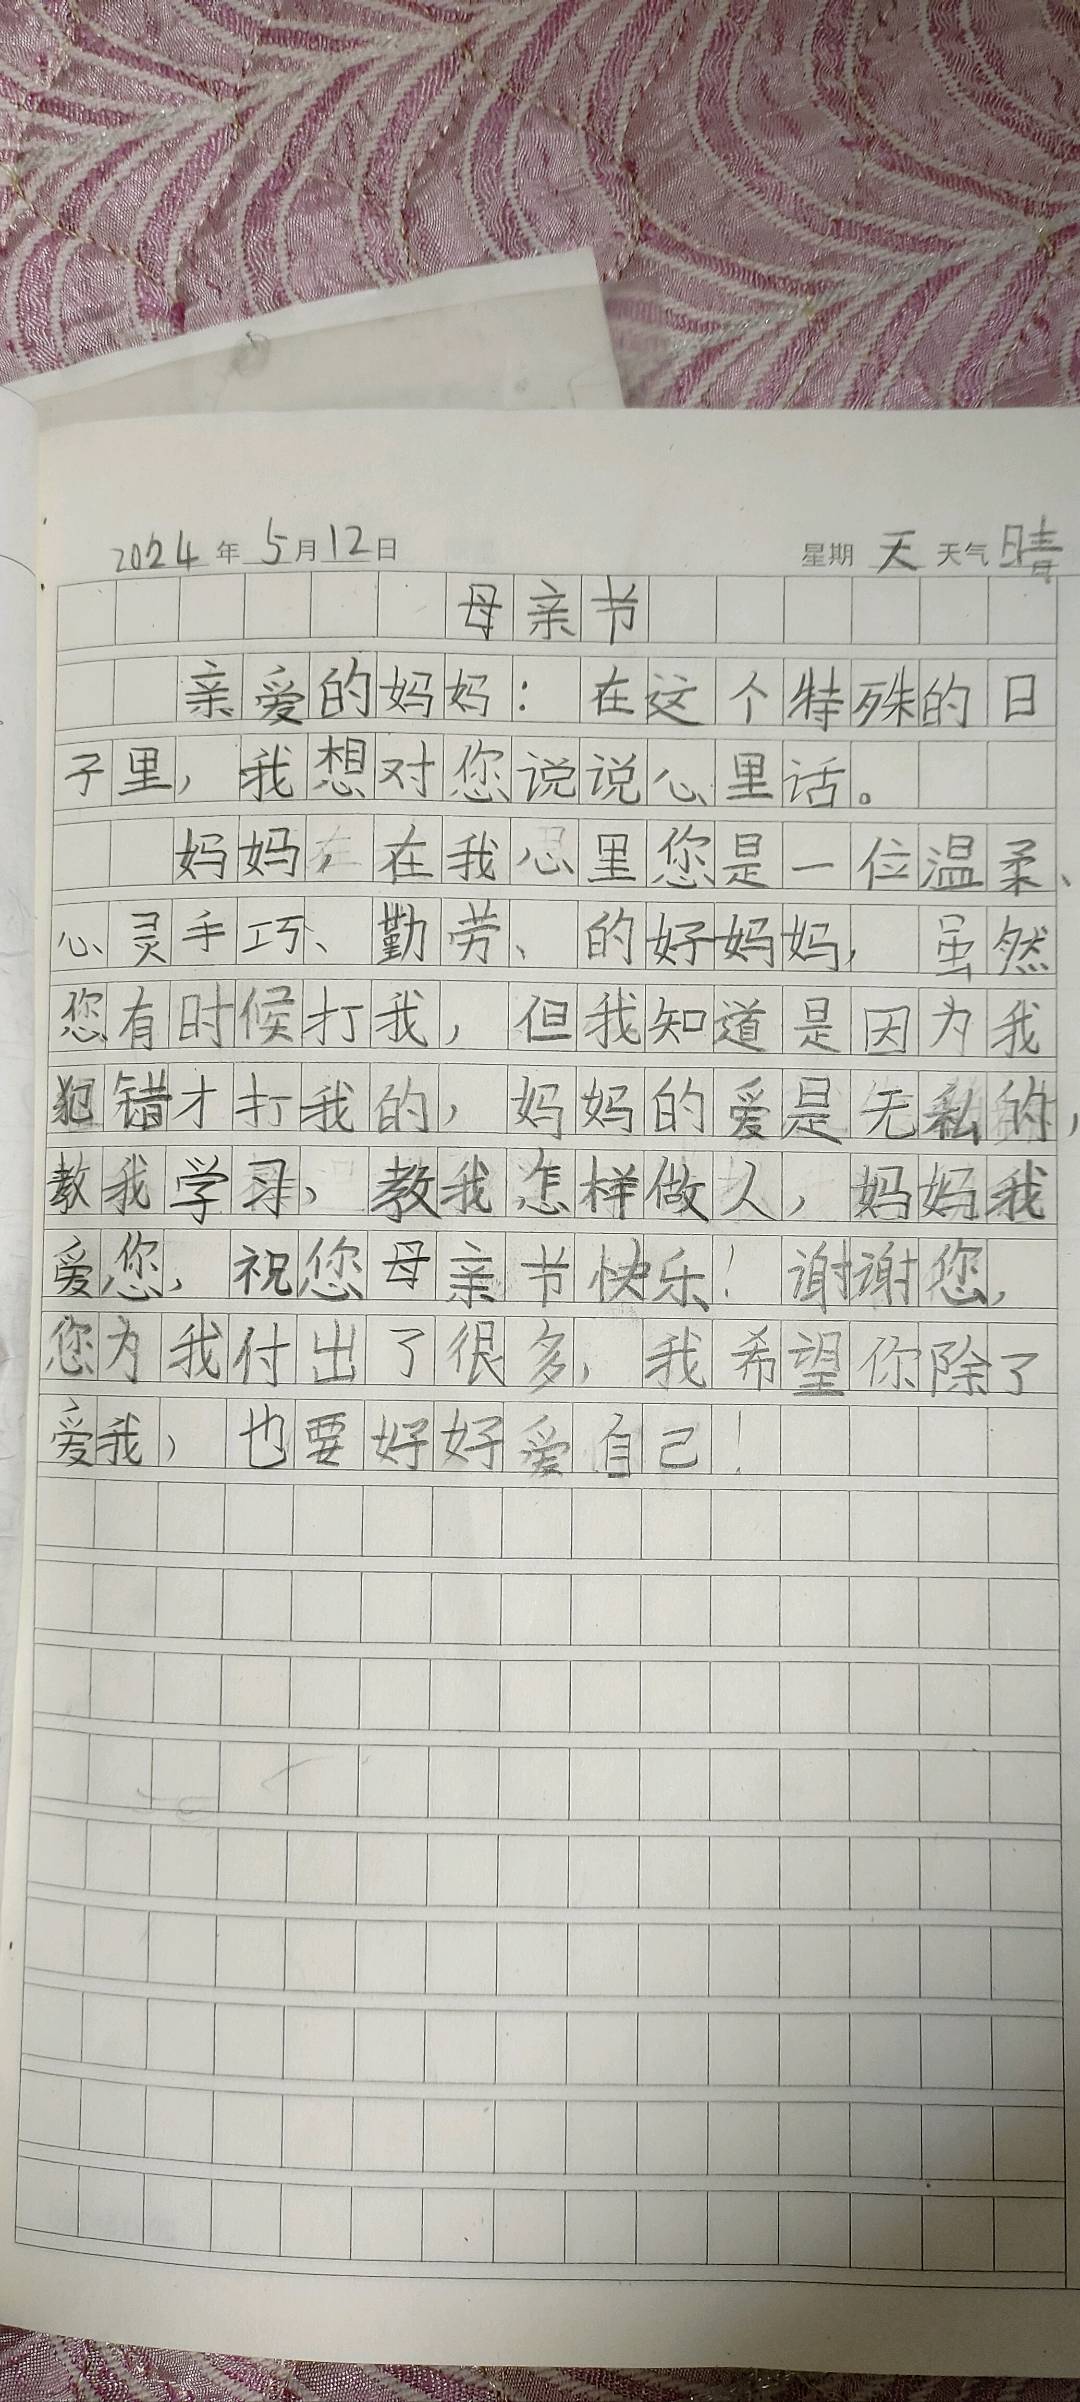 2024年5月12日 星期天 天气晴
母亲节
亲爱的妈妈：在这个特殊的日
子里，我想对您说说心里话。
妈妈，在我心里您是一位温柔、
心灵手巧、勤劳、的好妈妈，虽然
您有时候打我，但我知道是因为我
犯错才打我的，妈妈的爱是无私的，
教我学习，教我怎样做人，妈妈我
爱您，祝您母亲节快乐！谢谢您，
您为我付出了很多，我希望你除了
爱我，也要好好爱自己！